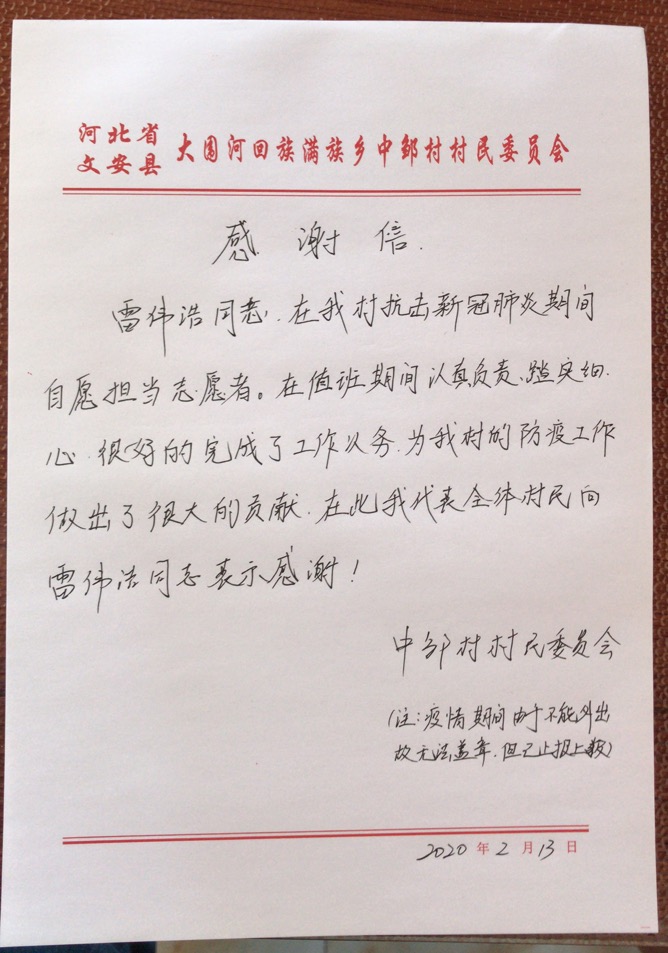 河北省
文安县
大围河回族满族乡中邹村村民委员会
感谢信.
雷伟浩同志.在我村抗击新冠肺炎期间
自愿担当志愿者。在值班期间认真负责、踏实细
心.很好的完成了工作义务.为我村的防疫工作
做出了很大的贡献.在此我代表全体村民向
雷伟浩同志表示感谢!
中邹村村民委员会
(注:疫情期间由于不能外出
故无法盖章.但已上报上级)
2020年2月13日